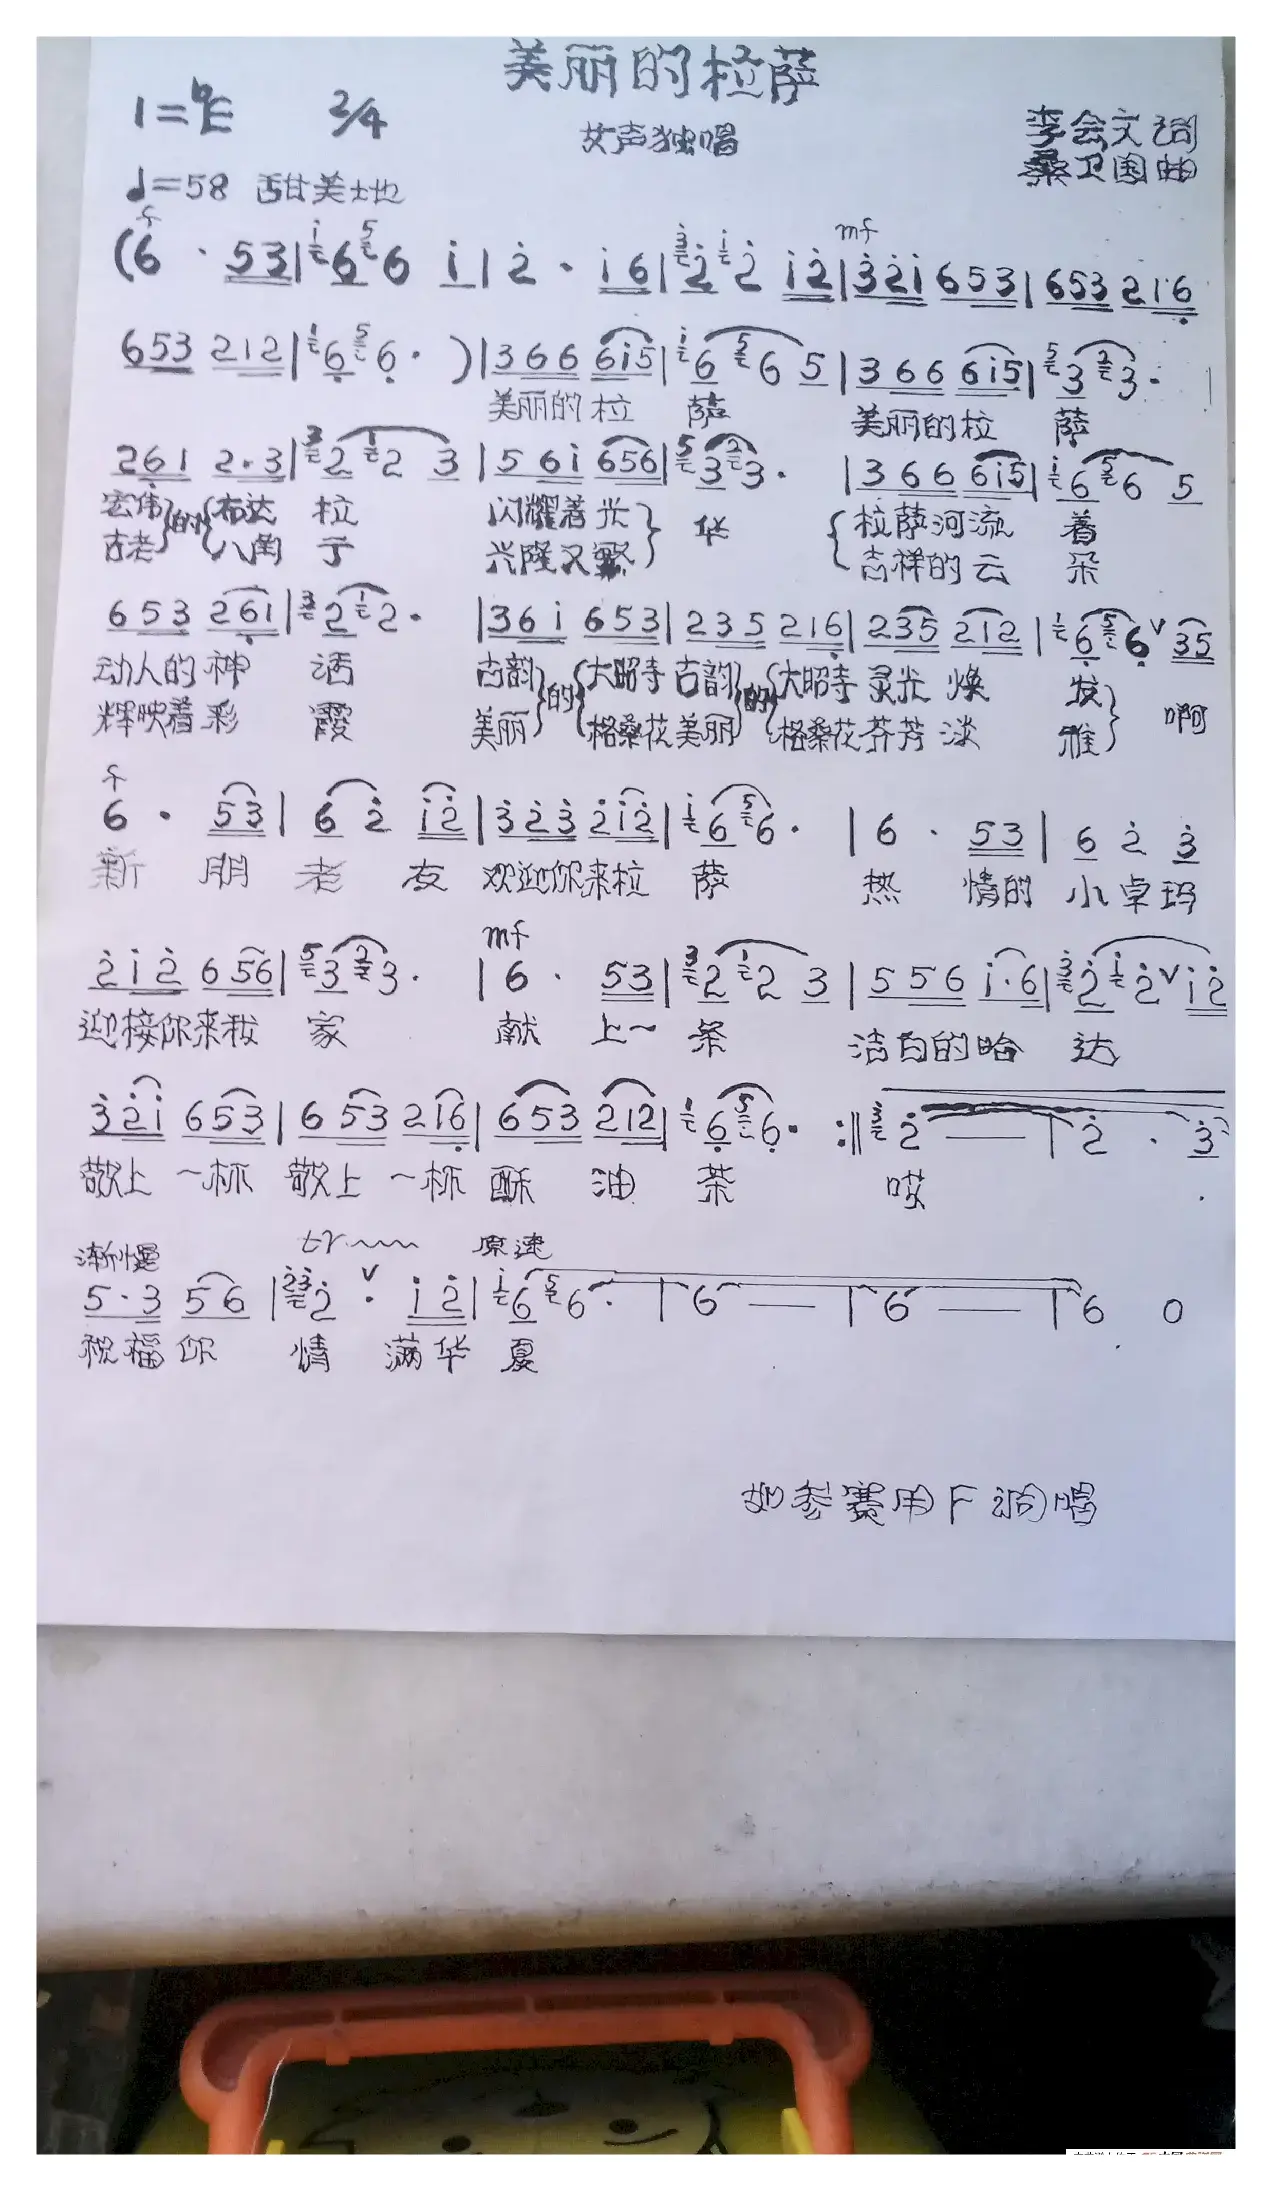 美丽的拉萨
1=bE 2/4
女声独唱
李会文词
桑卫国曲
♩=58 甜美地
f mf
(6 · 53|6 6 i|2 · i6|2 2 i2|32i 653|653 216
653 212|6 6 · )|366 6i5|6 6 5|366 6i5|3 3 ·
美丽的拉 萨 美丽的拉 萨
261 2·3|2 2 3|56i 656|3 3 · |366 6i5|6 6 5
宏伟}的{布达 拉 闪耀着光} 华 {拉萨河流 着
古老}的{八角 子 兴隆又繁} {吉祥的云 朵
653 261|2 2 · |36i 653|235 216|235 212|6 6 v 35
动人的神 话 古韵}的{大昭寺古韵}的{大昭寺灵光焕 发}
辉映着彩 霞 美丽}的{格桑花美丽}的{格桑花芬芳淡 雅} 啊
f
6 · 53|6 2 i2|323 2i2|6 6 · |6 · 53|6 2 3
新 朋 老 友 欢迎你来拉 萨 热 情的 小卓玛
mf
2i2 656|3 3 · |6 · 53|2 2 3|556 i·6|2 2 v i2
迎接你来我 家 献 上一 条 洁白的哈 达
32i 653|653 216|653 212|6 6 · :‖2 — |2 · 3
敬上 一杯 敬上 一杯 酥 油 茶 哎
渐慢 tr 原速
5·3 56|2 v · i2|6 6 · |6 — |6 — |6 0
祝福你 情 满华 夏
如参赛用F调唱